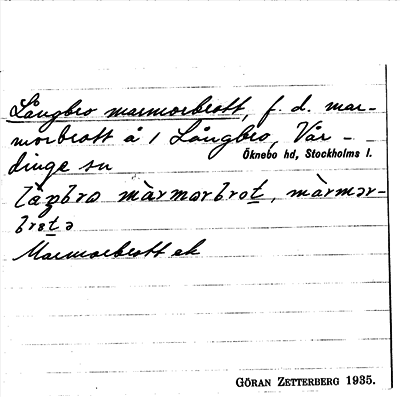 Långbro marmorbrott, f. d. mar-
morbrott å 1 Långbro, Vår-
dinge sn Öknebo hd, Stockholms l.
làŋbro màrmorbrot, màrmər-
brotə
Marmorbrott ek
GÖRAN ZETTERBERG 1935.